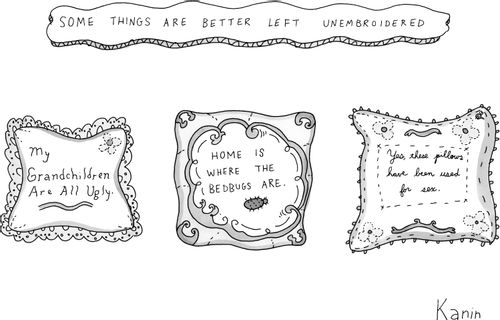 SOME THINGS ARE BETTER LEFT UNEMBROIDERED
My
Grandchildren
Are All Ugly.
HOME IS
WHERE THE
BEDBUGS ARE.
Yes, these pillows
have been used
for sex.
Kanin